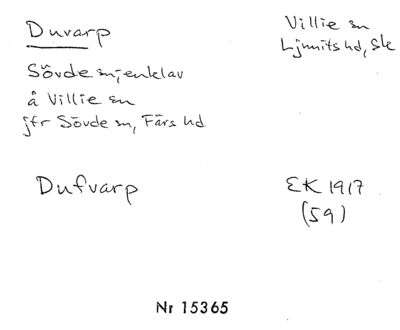 Duvarp
Villie sn
Ljunits hd, Sk
Sövde sn, enklav
å Villie sn
jfr Sövde sn, Färs hd
Dufvarp
EK 1917
(59)
Nr 15365